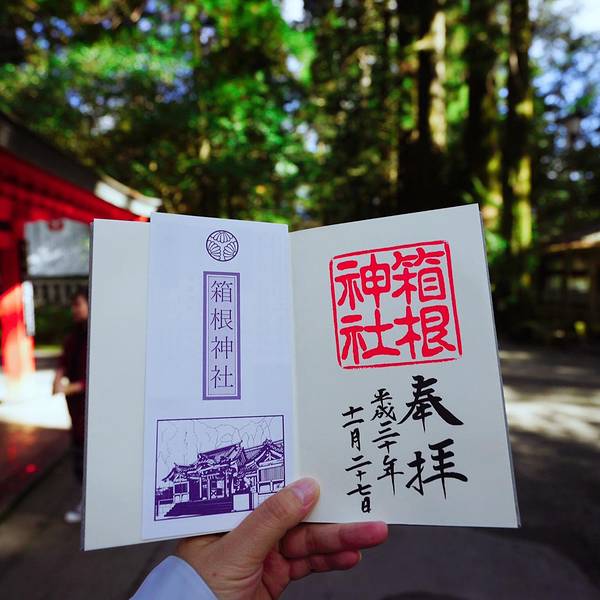 箱根神社
箱根
神社
奉拝
平成三十年
十一月二十七日